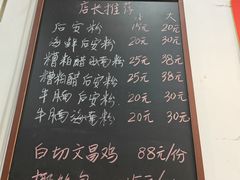 店长推荐
小 大
后安粉 15元 20元
海鲜后安粉 20元 30元
糟粕醋海鲜粉 25元 38元
糟粕醋后安粉 25元 38元
牛腩后安粉 20元 30元
牛腩海鲜粉 20元 30元
白切文昌鸡 88元/份